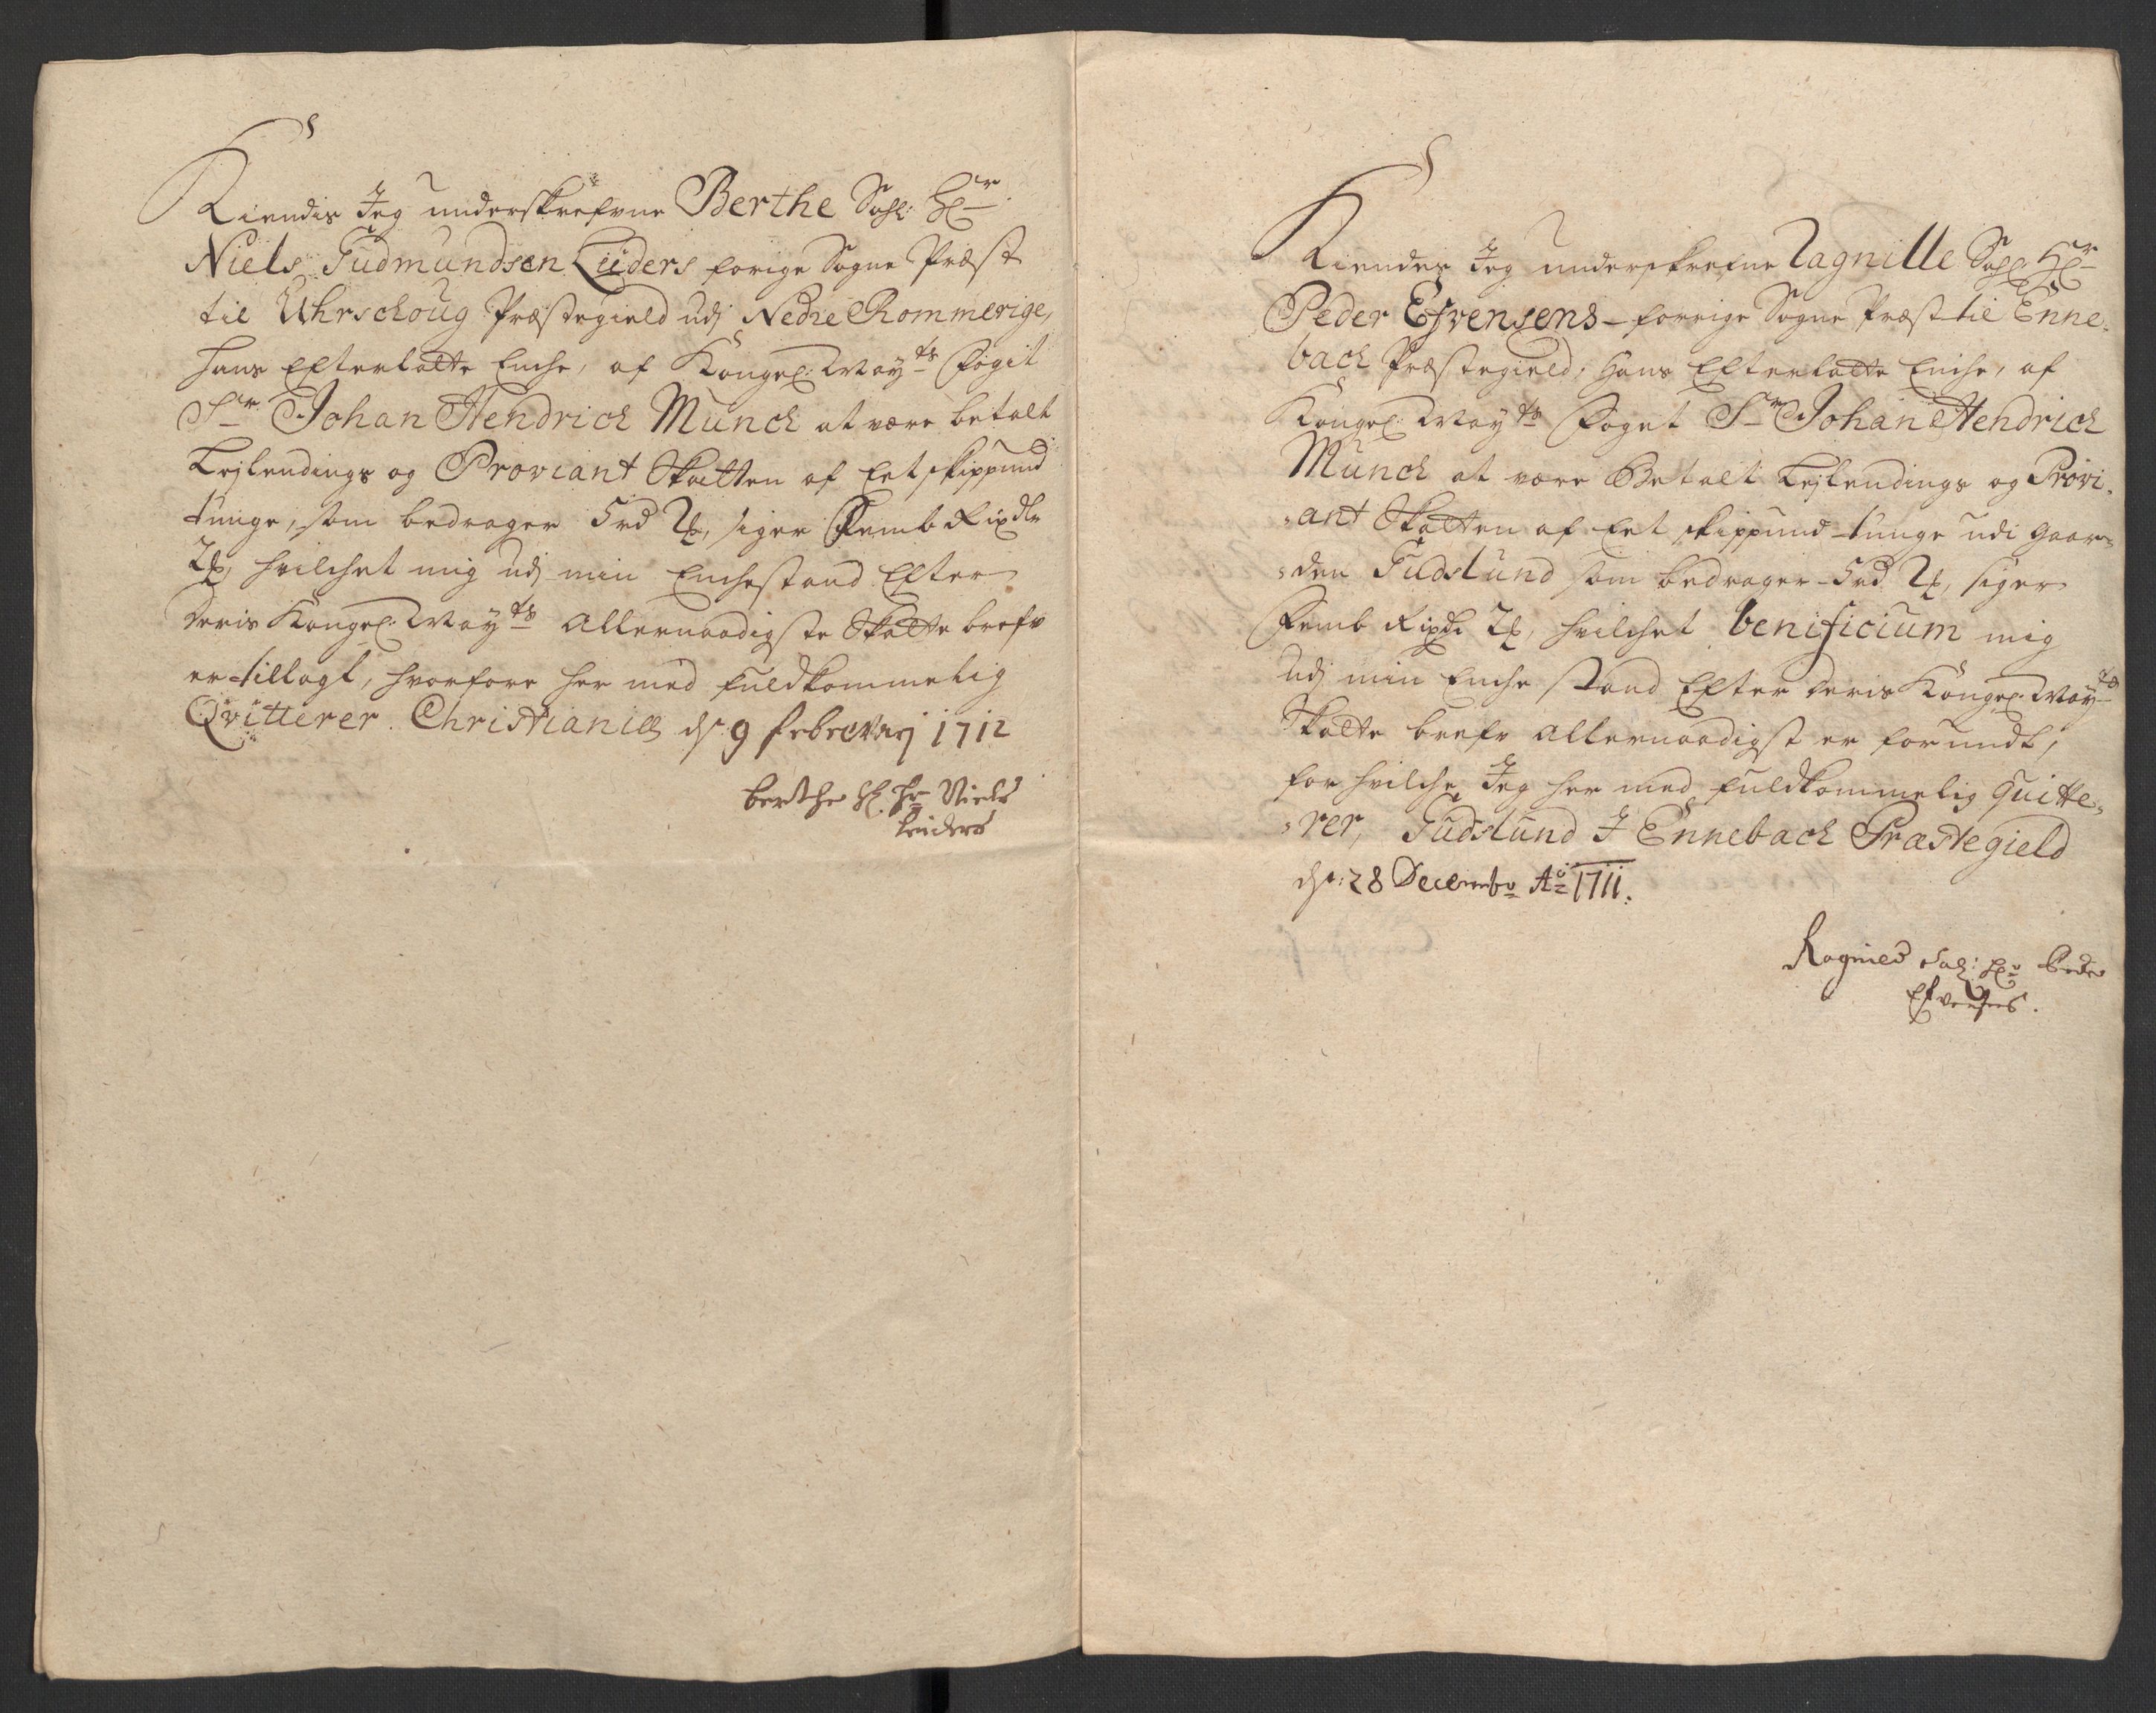 Kiendis Jeg underskrefvne Berthe Sahl: Hr
Niels Gudmundsen Lüders forige Sogne Præst
til Uhrschoug Præstegield udj Nedre Rommerige,
hans Efterlatte Enche, af Kongel: Mayts Fogit
Sr Johan Hendrich Munch at være betalt
Leylendings og Proviant Skatten af Eet skippund
tunge, som bedrager 5 rd , siger Femb Rixdlr
 hvilchet mig udj min Enchestand Efter
deris Kongel: Mayts Allernaadigste Skatte bref
er tillagt, hvorfore her med fuldkommelig
Qvitterer. Christiania d 9 Februarij 1712
berthe Sl. Hr Niels
Lüders
Kiendes Jeg underskrefne Ragnille Sahl: Hr
Peder Efvensens forrige Sogne Præst til Enne-
bach Præstegield, Hans Efterlatte Enche, af
Kongel: Mayts Foget Sr Johan Hendrich
Münch at være Betalt Leylendings og Provi-
ant Skatten af Eet skippund tunge udi gaar-
den Gudslund som bedrager 5 rd , siger
Femb Rixdr , hvilchet benificium mig
udj min Enche stand Efter deris Kongel: Mayts
Skatte brefv allernaadigst er forundt,
for hvilche Jeg her med fuldkommelig quitte-
rer, Gudslund J Ennebach Præstegield
d: 28 Decembr Ao 1711.
Ragnild Sal: Hr Peder
Efvensens.